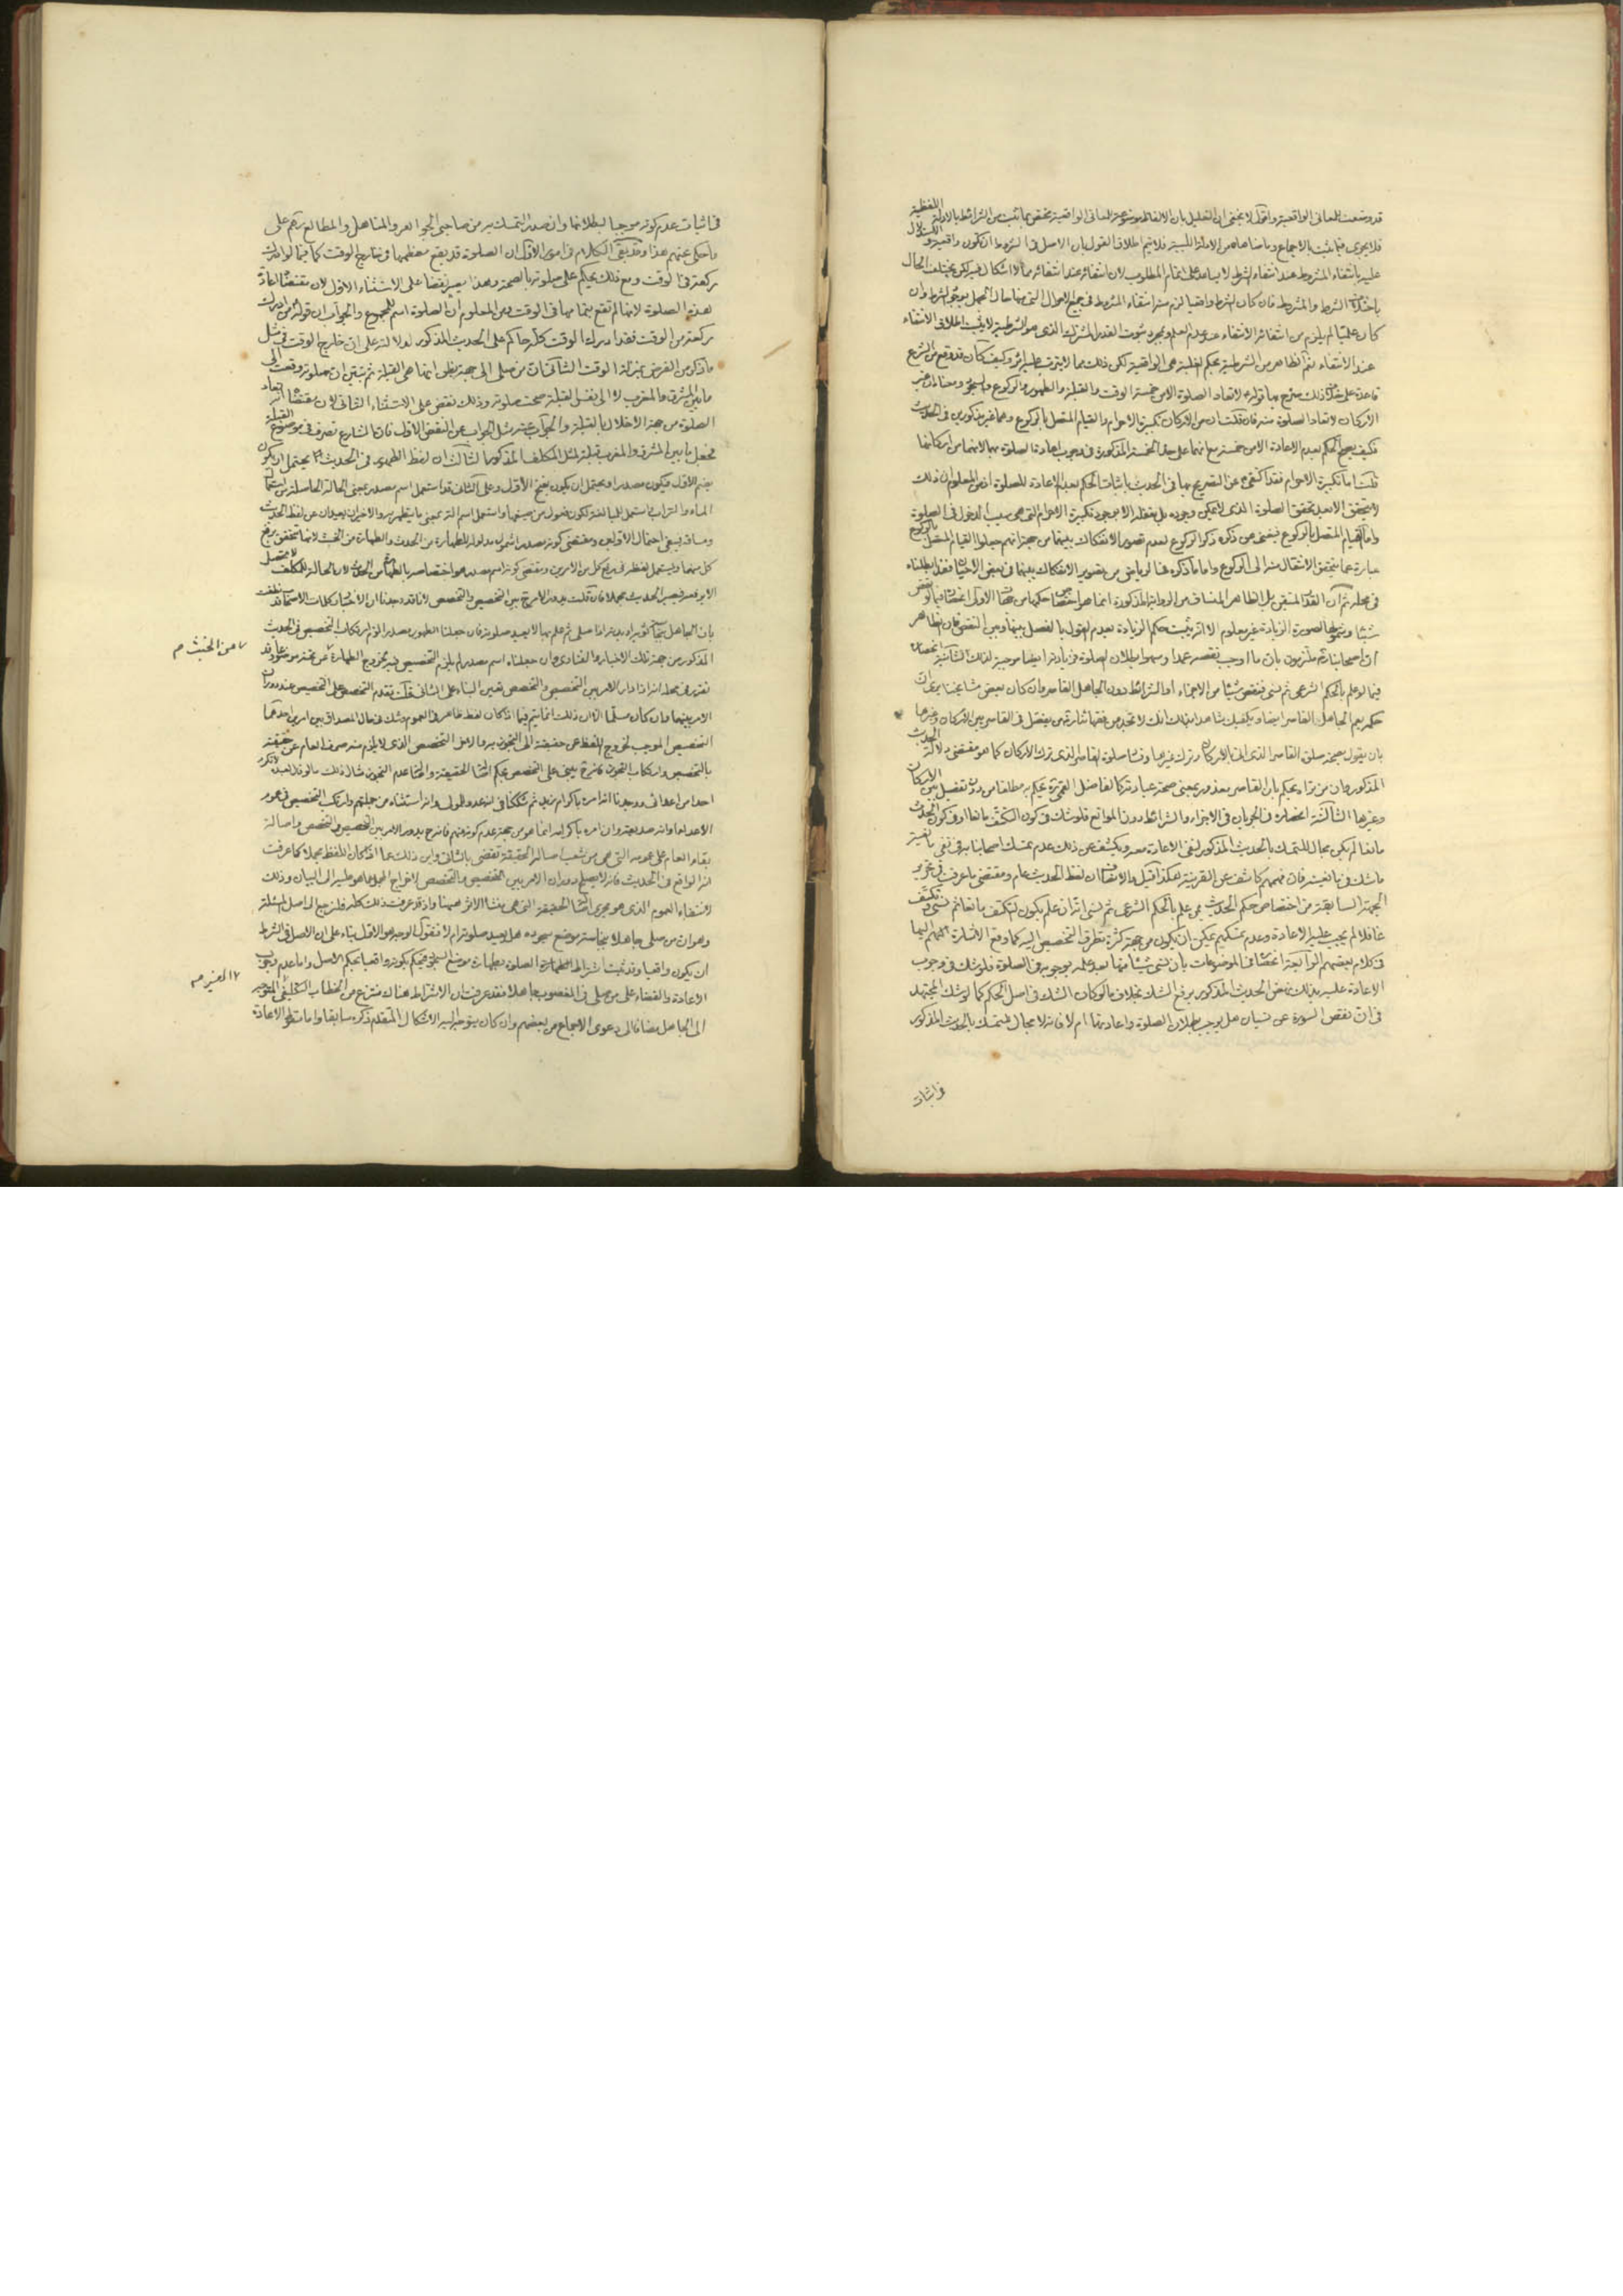 قد وضعت للمعانى الواقعية واقول لا يخفى ان التعليل بان الالفاظ موضوعة للمعانى الواقعية يختص بما ثبت من الشرائط بالادلة اللفظية
فلا يجرى فيما ثبت بالاجماع وما ضاهاه من الادلة اللبية فلا يتم اطلاق القول بان الاصل فى الشروط ان تكون واقعية
عليه بانتفاء المشروط عند انتفاء الشرط لا يساعد على اتمام المطلوب لان انتفائه عند انتفائه مما لا اشكال فيه لكن يختلف الحال
باختلاف الشرط والمشروط فان كان الشرط واقعيا لزم منه انتفاء المشروط فى جميع الاحوال التى منها حال الجهل بوجود الشرط وان
كان علميا لم يلزم من انتفائه الانتفاء عند عدم العلم ومجرد ثبوت القدر المشترك الذى هو الشرطية لا يثبت اطلاق الانتفاء
عند الانتفاء نعم الظاهر من الشرطية بحكم الغلبة هى الواقعية لكن ذلك مما لا يترتب عليه اثر وكيف كان قد وقع من الشرع
قاعدة على خلاف ذلك صرح بها قوله لا تعاد الصلوة الا من خمسة الوقت والقبلة والطهور والركوع والسجود ومعناه ان غير
الاركان لا تعاد الصلوة منه فان قلت ان من الاركان تكبيرة الاحرام والقيام المتصل بالركوع وهما غير مذكورين فى الحديث
فكيف يصح الحكم بعدم الاعادة الا من خمسة مع انهما على حد الخمسة المذكورة فى وجوب اعادة الصلوة بهما لانهما من اركانها
قلت اما تكبيرة الاحرام فقد اكتفى عن التصريح بها فى الحديث باثبات الحكم بعدم الاعادة للصلوة اذ من المعلوم ان ذلك
لا يتحقق الا بعد تحقق الصلوة الذى لا يمكن وجوده بل تعقله الا بوجود تكبيرة الاحرام التى هى سبب الدخول فى الصلوة
واما القيام المتصل بالركوع فيغنى عن ذكره ذكر الركوع لعدم تصور الانفكاك بينهما من جهة انهم جعلوا القيام المتصل بالركوع
عبارة عما يتحقق الانتقال منه الى الركوع واما ما ذكره فى الرياض من تصوير الانفكاك بينهما فى بعض الاحيان فقد ابطلناه
فى محله ثم ان القدر المتيقن بل الظاهر المنساق من الرواية المذكورة انما هو اختصاص حكمها من جهات الاولى اختصاصها بالنقص
شيئا وشمولها لصورة الزيادة غير معلوم الا انه يثبت حكم الزيادة بعدم القول بالفصل بينها وبين النقص فان الظاهر
ان اصحابنا ره ملتزمون بان ما اوجب نقصه عمدا وسهوا بطلان الصلوة فزيادته ايضا موجبة لذلك الثانية اختصاصه
فيما لو علم بالحكم الشرعى ثم نسى فنقص شيئا من الاجزاء او الشرائط دون الجاهل القاصر وان كان بعض مشايخنا يرى ان
حكمه يعم الجاهل القاصر ايضا ويكفيك شاهدا بذلك انك لا تجد من فقهائنا رض من يفصل فى القاصر بين الاركان وغيرها
بان يقول بصحة صلوة القاصر الذى اتى بالاركان وترك غيرها وفساد صلوة القاصر الذى ترك الاركان كما هو مقتضى دلالة الحديث
المذكور وان من تراه يحكم بان القاصر معذور بمعنى صحة عبادته كالفاضل القمى ره يحكم به مطلقا من دون تفصيل بين الاركان
وغيرها الثالثة اختصاصه فى الجريان فى الاجزاء والشرائط دون الموانع فلو شك فى كون التكتف مانعا او فى كون الحدث
مانعا لم يكن مجال للتمسك بالحديث المذكور لنفى الاعادة معه ويكشف عن ذلك عدم تمسك اصحابنا به فى نفى مانعية
ما شك فى مانعيته فان فهمهم كاشف عن القرينة هكذا قيل والانصاف ان لفظ الحديث عام ومقتضى ما عرفت فى تحرير
الجهة السابقة من اختصاص حكم الحديث بمن علم بالحكم الشرعى ثم نسى انه ان علم بكون التكتف مانعا ثم نسى وتكتف
غافلا لم يجب عليه الاعادة وعدم تمسكهم يمكن ان يكون من جهة كثرة تطرق التخصيص اليه كما وقع الاشارة منهم اليها
فى كلام بعضهم الرابعة اختصاصه فى الموضوعات بان نسى شيئا منها بعد علمه بوجوبه فى الصلوة فلو شك فى وجوب
الاعادة عليه بذلك نهض الحديث المذكور برفع الشك بخلاف ما لو كان الشك فى اصل الحكم كما لو شك المجتهد
فى ان نقص السورة عن نسيان هل يوجب بطلان الصلوة واعادتها ام لا فانه لا مجال للتمسك بالحديث المذكور
فى اثبات
فى اثبات عدم كونه موجبا لبطلانها وان صدر التمسك به من صاحبى الجواهر والمناهل والمطالع ره على
ما حكى عنهم هذا وقد بقى الكلام فى امور الاول ان الصلوة قد يقع معظمها فى خارج الوقت كما فيما لو ادرك
ركعة فى الوقت ومع ذلك يحكم على صلوته بالصحة وهذا يصير نقضا على الاستثناء الاول لان مقتضاه اعادة
هذه الصلوة لانها لم تقع بتمامها فى الوقت ومن المعلوم ان الصلوة اسم للمجموع والجواب ان قوله من ادرك
ركعة من الوقت فقد ادرك الوقت كله حاكم على الحديث المذكور لدلالته على ان خارج الوقت فى مثل
ما ذكر من الفرض بمنزلة الوقت الثانى ان من صلى الى جهة بظن انها هى القبلة ثم تبين ان صلوته وقعت الى
ما بين المشرق والمغرب لا الى نفس القبلة صحت صلوته وذلك نقض على الاستثناء الثانى لان مقتضاه انه تعاد
الصلوة من جهة الاخلال بالقبلة والجواب عنه مثل الجواب عن النقض الاول فان الشارع تصرف فى موضوع القبلة
فجعل ما بين المشرق والمغرب قبلة لمثل المكلف المذكور الثالث ان لفظ الطهور فى الحديث يحتمل ان يكون
بضم الاول فيكون مصدرا ويحتمل ان يكون بفتح الاول وعلى الثانى قد استعمل اسم مصدر بمعنى الحالة الحاصلة من استعمال
الماء والتراب واستعمل للمبالغة لكون فعول من صيغها واستعمل اسم آلة بمعنى ما يتطهر به والاخيران بعيدان عن لفظ الحديث
ومساقه فيبقى احتمال الاولين ومقتضى كونه مصدرا شمول مدلوله للطهارة من الحدث والطهارة من الخبث لانها تتحقق برفع
كل منهما ويستعمل لفظه فى رفع كل من الامرين ومقتضى كونه اسم مصدر هو اختصاصه بالطهارة من الحدث لان الحالة للمكلف لا تحصل
الا به فيصير الحديث مجملا فان قلت يدور الامر ح بين التخصيص والتخصص لانا قد وجدنا ان الاخبار وكلمات الاصحاب قد نطقت
بان الجاهل بنجاسة ثوبه او بدنه اذا صلى ثم علم بها لا يعيد صلوته فان جعلنا الطهور مصدرا لزم ارتكاب التخصيص فى الحديث
المذكور من جهة تلك الاخبار والفتاوى وان جعلناه اسم مصدر لم يلزم التخصيص فيه لخروج الطهارة عن تحته موضوعا وقد
من الخبث م
تقرر فى محله انه اذا دار الامر بين التخصيص والتخصص تعين البناء على الثانى قلت تقدم التخصص على التخصيص عند دوران
الامر بينهما وان كان مسلما الا ان ذلك انما يتم فيما اذا كان لفظ ظاهر فى العموم وشك فى حال المصداق بين امرين احدهما
التخصيص الموجب لخروج اللفظ عن حقيقته الى التجوز به والاخر التخصص الذى لا يلزم منه صرف العام عن حقيقته
بالتخصيص وارتكاب التجوز فانه ح يبنى على التخصص بحكم اصالة الحقيقة واصالة عدم التجوز مثال ذلك ما لو قال لعبده لا تكرم
احدا من اعدائى ووجدنا انه امره باكرام زيد ثم شككنا فى انه عدو للمولى وانه استثناه من جملتهم وارتكب التخصيص فى عموم
الاعداء او انه صديقه وان امره باكرامه انما هو من جهة عدم كونه منهم فانه ح يدور الامر بين التخصيص والتخصص واصالة
بقاء العام على عمومه التى هى من شعب اصالة الحقيقة تقضى بالثانى واين ذلك عما اذا كان اللفظ مجملا كما عرفت
انه الواقع فى الحديث فانه لا يصلح دوران الامر بين التخصيص والتخصص لاخراج المجمل عما هو عليه الى البيان وذلك
لانتفاء العموم الذى هو مجرى اصالة الحقيقة التى هى منشأ الاثر هيهنا واذ قد عرفت ذلك كله فلنرجع الى اصل المسئلة
وهو ان من صلى جاهلا بنجاسة موضع سجوده هل يعيد صلوته ام لا فنقول الوجه هو الاول بناء على ان الاصل فى الشرط
ان يكون واقعيا وقد ثبت اشتراط الصلوة بطهارة موضع السجود فيحكم بكونه واقعيا بحكم الاصل واما عدم وجوب
الاعادة والقضاء على من صلى فى المغصوب جاهلا فقد عرفت ان الاشتراط هناك منتزع من الخطاب التكليفى المتوجه
الى الجاهل مضافا الى دعوى الاجماع من بعضهم وان كان يتوجه اليه الاشكال المتقدم ذكره سابقا واما سقوط الاعادة